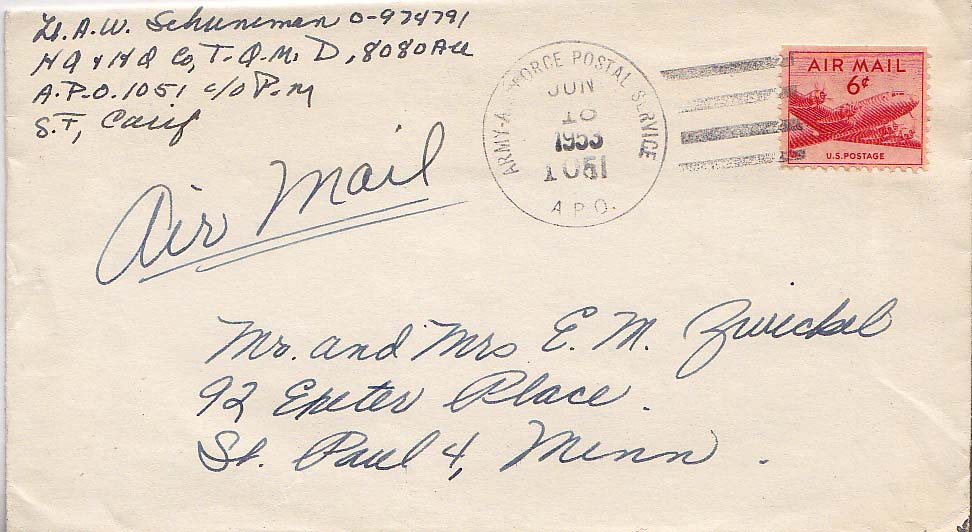 Lt. A.W. Schuneman O-974791
HQ & HQ Co, T-Q.M. D, 8080 AU
A.P.O. 1051 c/o P.M
S.F, Calif
ARMY-AIR FORCE POSTAL SERVICE
JUN
18
1953
1051
A.P.O.
AIR MAIL
6¢
U.S. POSTAGE
Air Mail
Mr. and Mrs E. M. Zwickel
92 Exeter Place.
St. Paul 4, Minn.